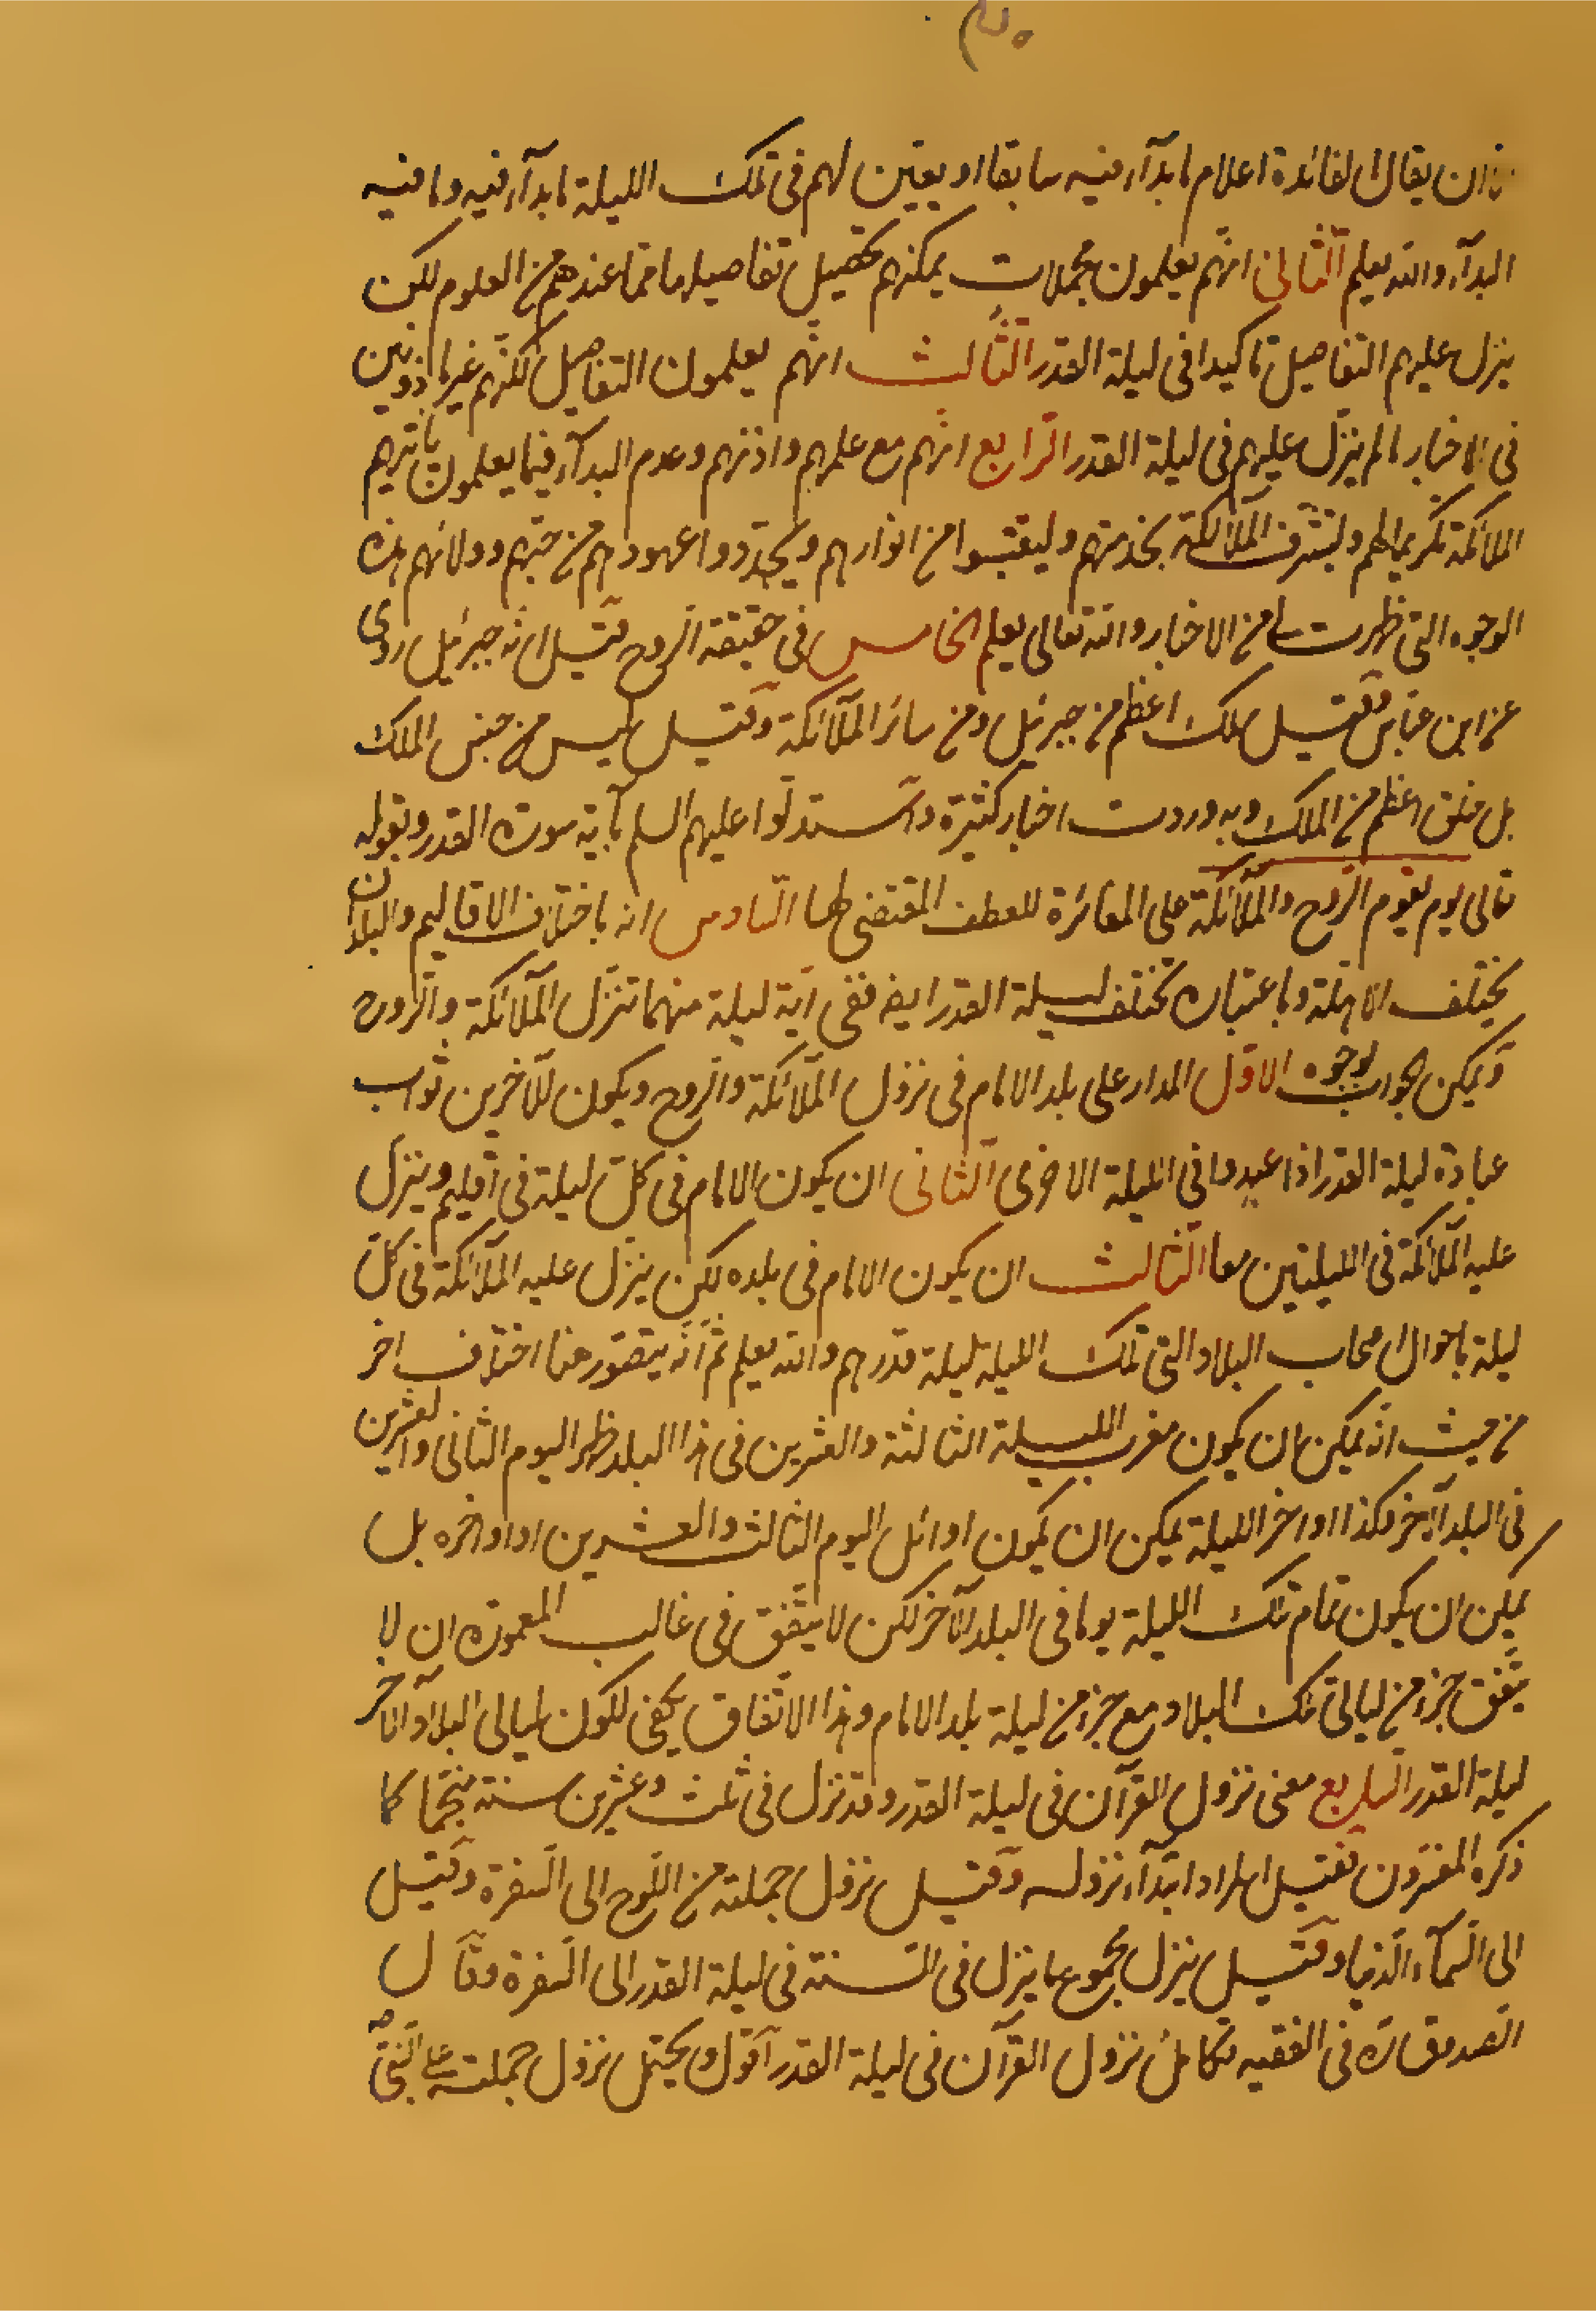 ان يقال الفائدة اعلام ما بدآء فيه سابقا او يعيّن لهم فى تلك الليلة ما بدآء فيه وما فيه
البدآء والله يعلم الثانى انّهم يعلمون مجملات يمكنهم تحصيل تفاصيلها ممّا عندهم من العلوم لكن
ينزل عليهم التفاصيل تاكيدا فى ليلة القدر الثّالث انّهم يعلمون التفاصيل لكنّهم غير ماذونين
فى الاخبار ما لم ينزل عليهم فى ليلة القدر الرّابع انّهم مع علمهم واذنهم وعدم البدآء فيما يعلمون ياتيهم
الملائكة تكريما لهم وليتشرّف الملآئكة بخدمتهم وليقتبسوا من انوارهم ويجدّدوا عهودهم من حبّهم وولائهم هذه
الوجوه التى ظهرت لى من الاخبار والله تعالى يعلم الخامس فى حقيقة الرّوح قيل انّه جبرئيل روى
عن ابن عبّاس وقيل ملك اعظم من جبرئيل ومن سائر الملآئكة وقيل ليس من جنس الملك
بل خلق اعظم من الملك وبه وردت اخبار كثيرة واستدلّوا عليهم السلم بآية سورة القدر وبقوله
تعالى يوم يقوم الرّوح والملآئكة على المغائرة للعطف المقتضى لها السّادس انه باختلاف الاقاليم والبلدان
يختلف الاهلّة وباعتباره تختلف ليلة القدر ايضا ففى ايّة ليلة منهما تنزّل الملآئكة والرّوح
ويمكن الجواب بوجوه الاوّل المدار على بلد الامام فى نزول الملآئكة والرّوح ويكون للآخرين ثواب
عبادة ليلة القدر اذا عبدوا فى الليلة الاخرى الثّانى ان يكون الامام فى كلّ ليلة فى اقليم وينزل
عليه الملآئكة فى الليلتين معا الثّالث ان يكون الامام فى بلده لكن ينزّل عليه الملآئكة فى كلّ
ليلة باحوال اصحاب البلاد التى تلك الليلة ليلة قدرهم والله يعلم ثمّ انّه يتصوّر هنا اختلاف اخر
من حيث انّه يمكن ان يكون مغرب الليلة الثالثة والعشرين فى هذا البلد ظهر اليوم الثانى والعشرين
فى البلد الآخر وكذا اواخر الليلة يمكن ان يكون اوائل اليوم الثالث والعشرين او اواخره بل
يمكن ان يكون تمام تلك الليلة يوما فى البلد الآخر لكن لا يتّفق فى غالب المعمورة ان لا
يتّفق جزء من ليالى تلك البلاد مع جزء من ليلة بلد الامام وهذا الاتّفاق يكفى لكون ليالى البلاد الآخر
ليلة القدر السّابع معنى نزول القرآن فى ليلة القدر وقد نزل فى ثلث وعشرين سنة منجّما كما
ذكره المفسّرون فقيل المراد ابتدآء نزوله وقيل نزول جملته من اللّوح الى السّفرة وقيل
الى السّمآء الدّنيا وقيل ينزل مجموع ما ينزل فى السّنة فى ليلة القدر الى السّفرة وقال
الصدوق ره فى الفقيه تكامل نزول القرآن فى ليلة القدر اقول ويحتمل نزول جملته على النّبىّ ص